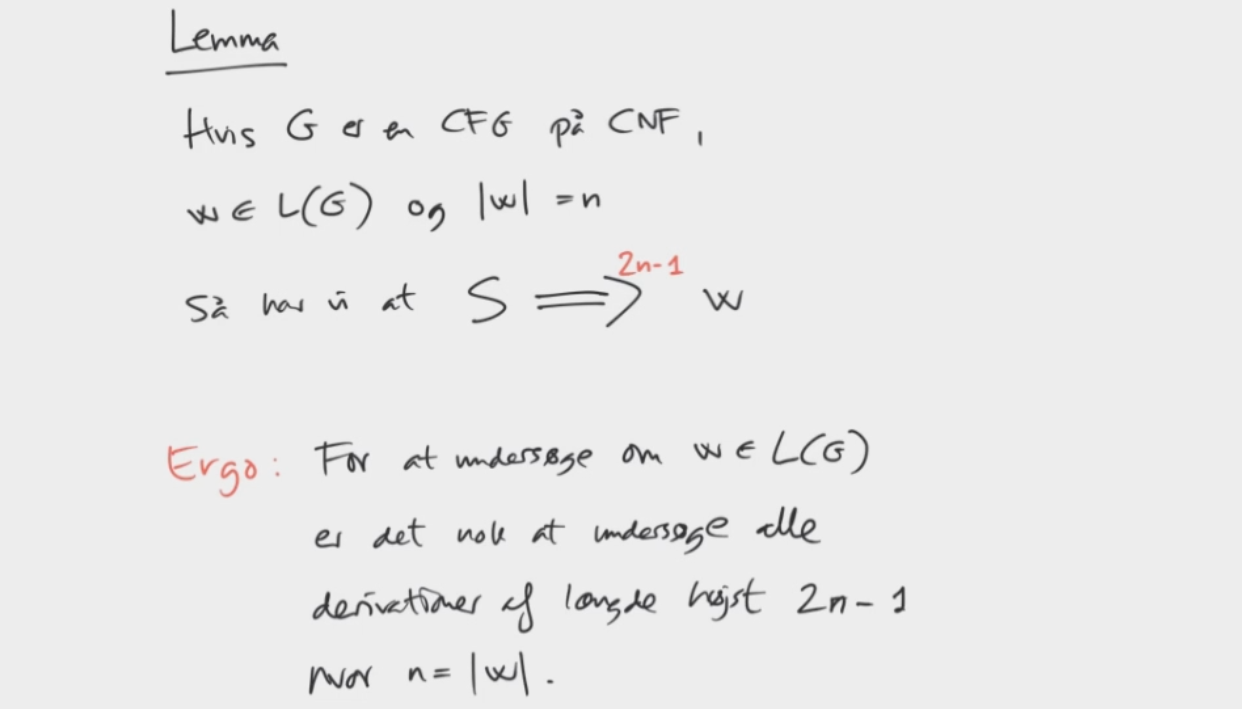 Lemma
Hvis G er en CFG på CNF,
w ∈ L(G) og |w| = n
Så har vi at S ⟹²ⁿ⁻¹ w
Ergo: For at undersøge om w ∈ L(G)
er det nok at undersøge alle
derivationer af længde højst 2n-1
hvor n = |w|.